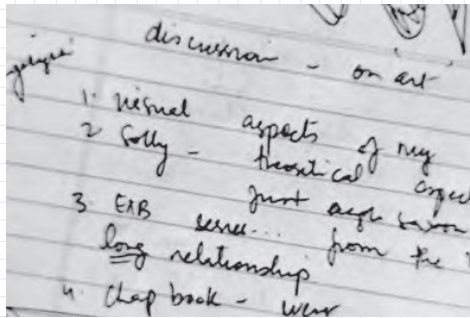 discussion - on art
1. visual aspects of my
2 Solly - theoretical aspec
just
3. EXB series... from the
long relationship
4. Chap book -